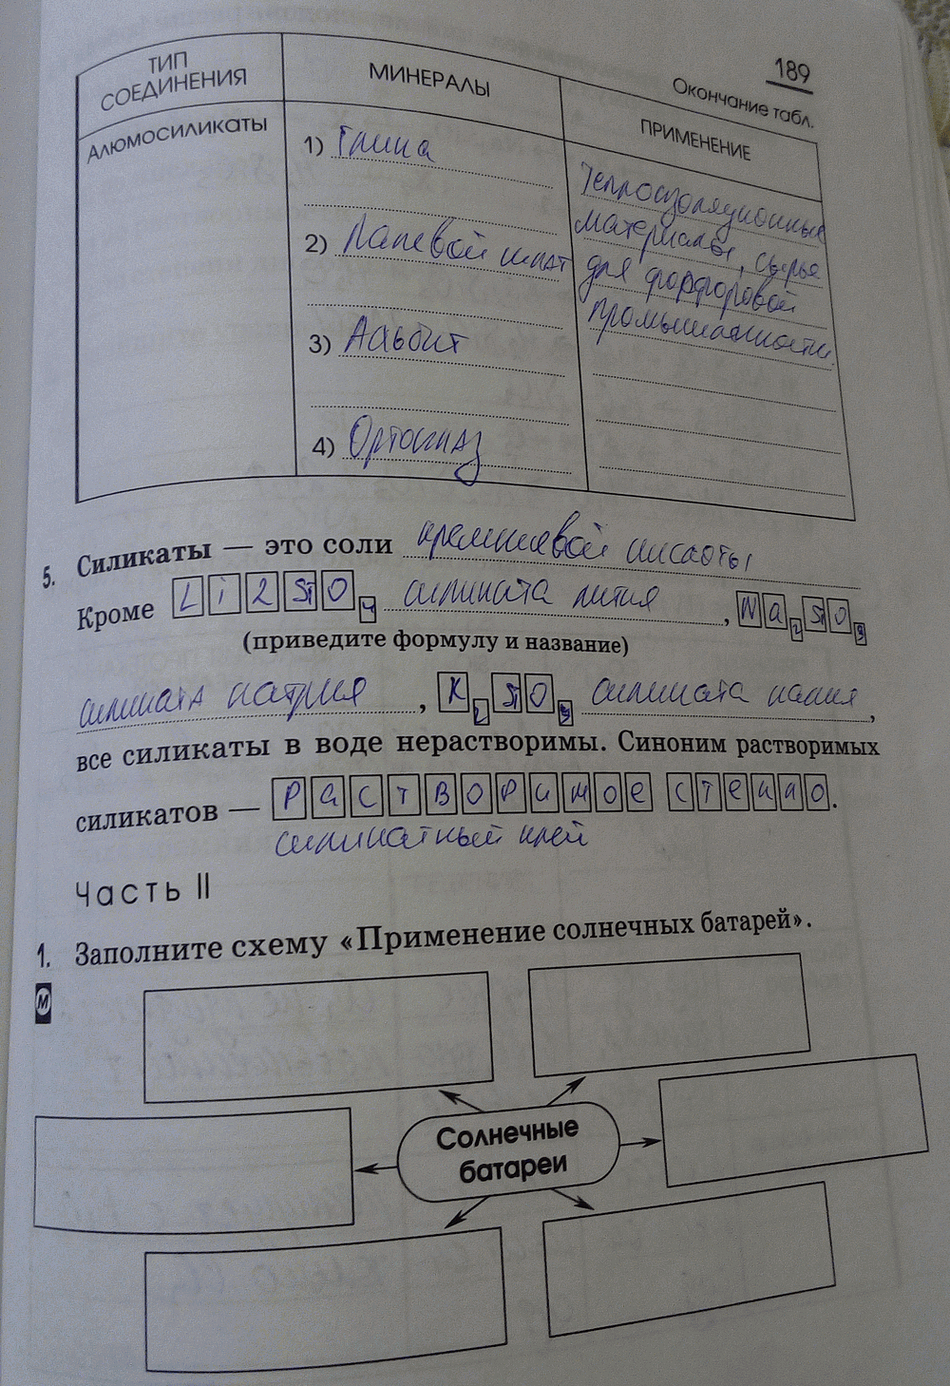 189
Окончание табл.
ТИП СОЕДИНЕНИЯ
МИНЕРАЛЫ
ПРИМЕНЕНИЕ
Алюмосиликаты
1) Глина
2) Полевой шпат
3) Альбит
4) Ортоклаз
Теплоизоляционные
материалы, сырье
для фарфоровой
промышленности.
5. Силикаты — это соли кремниевой кислоты
Кроме Li2SiO4 силиката лития, Na2SiO3
(приведите формулу и название)
силиката натрия, K2SiO3 силиката калия,
все силикаты в воде нерастворимы. Синоним растворимых
силикатов — Растворимое стекло.
силикатный клей
Часть II
1. Заполните схему «Применение солнечных батарей».
М
Солнечные
батареи